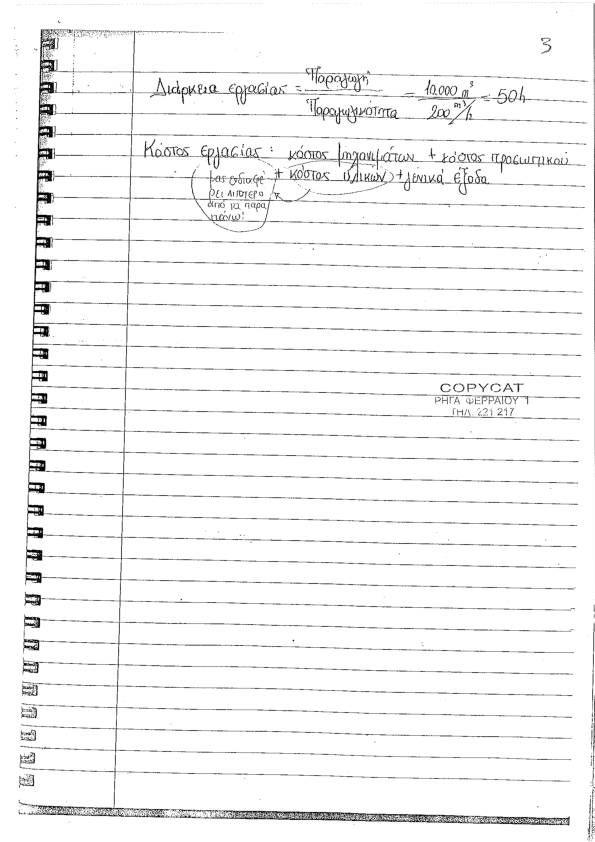 3
Διάρκεια εργασίας = Παραγωγή / Παραγωγικότητα = 10.000 m³ / 200 m³/h = 50h
Κόστος εργασίας : κόστος μηχανημάτων + κόστος προσωπικού
+ κόστος υλικών + γενικά έξοδα
μας ενδιαφέ
ρει λιγότερο
από τα παρα
πάνω!
COPYCAT
ΡΗΓΑ ΦΕΡΡΑΙΟΥ 1
ΤΗΛ. 221 217